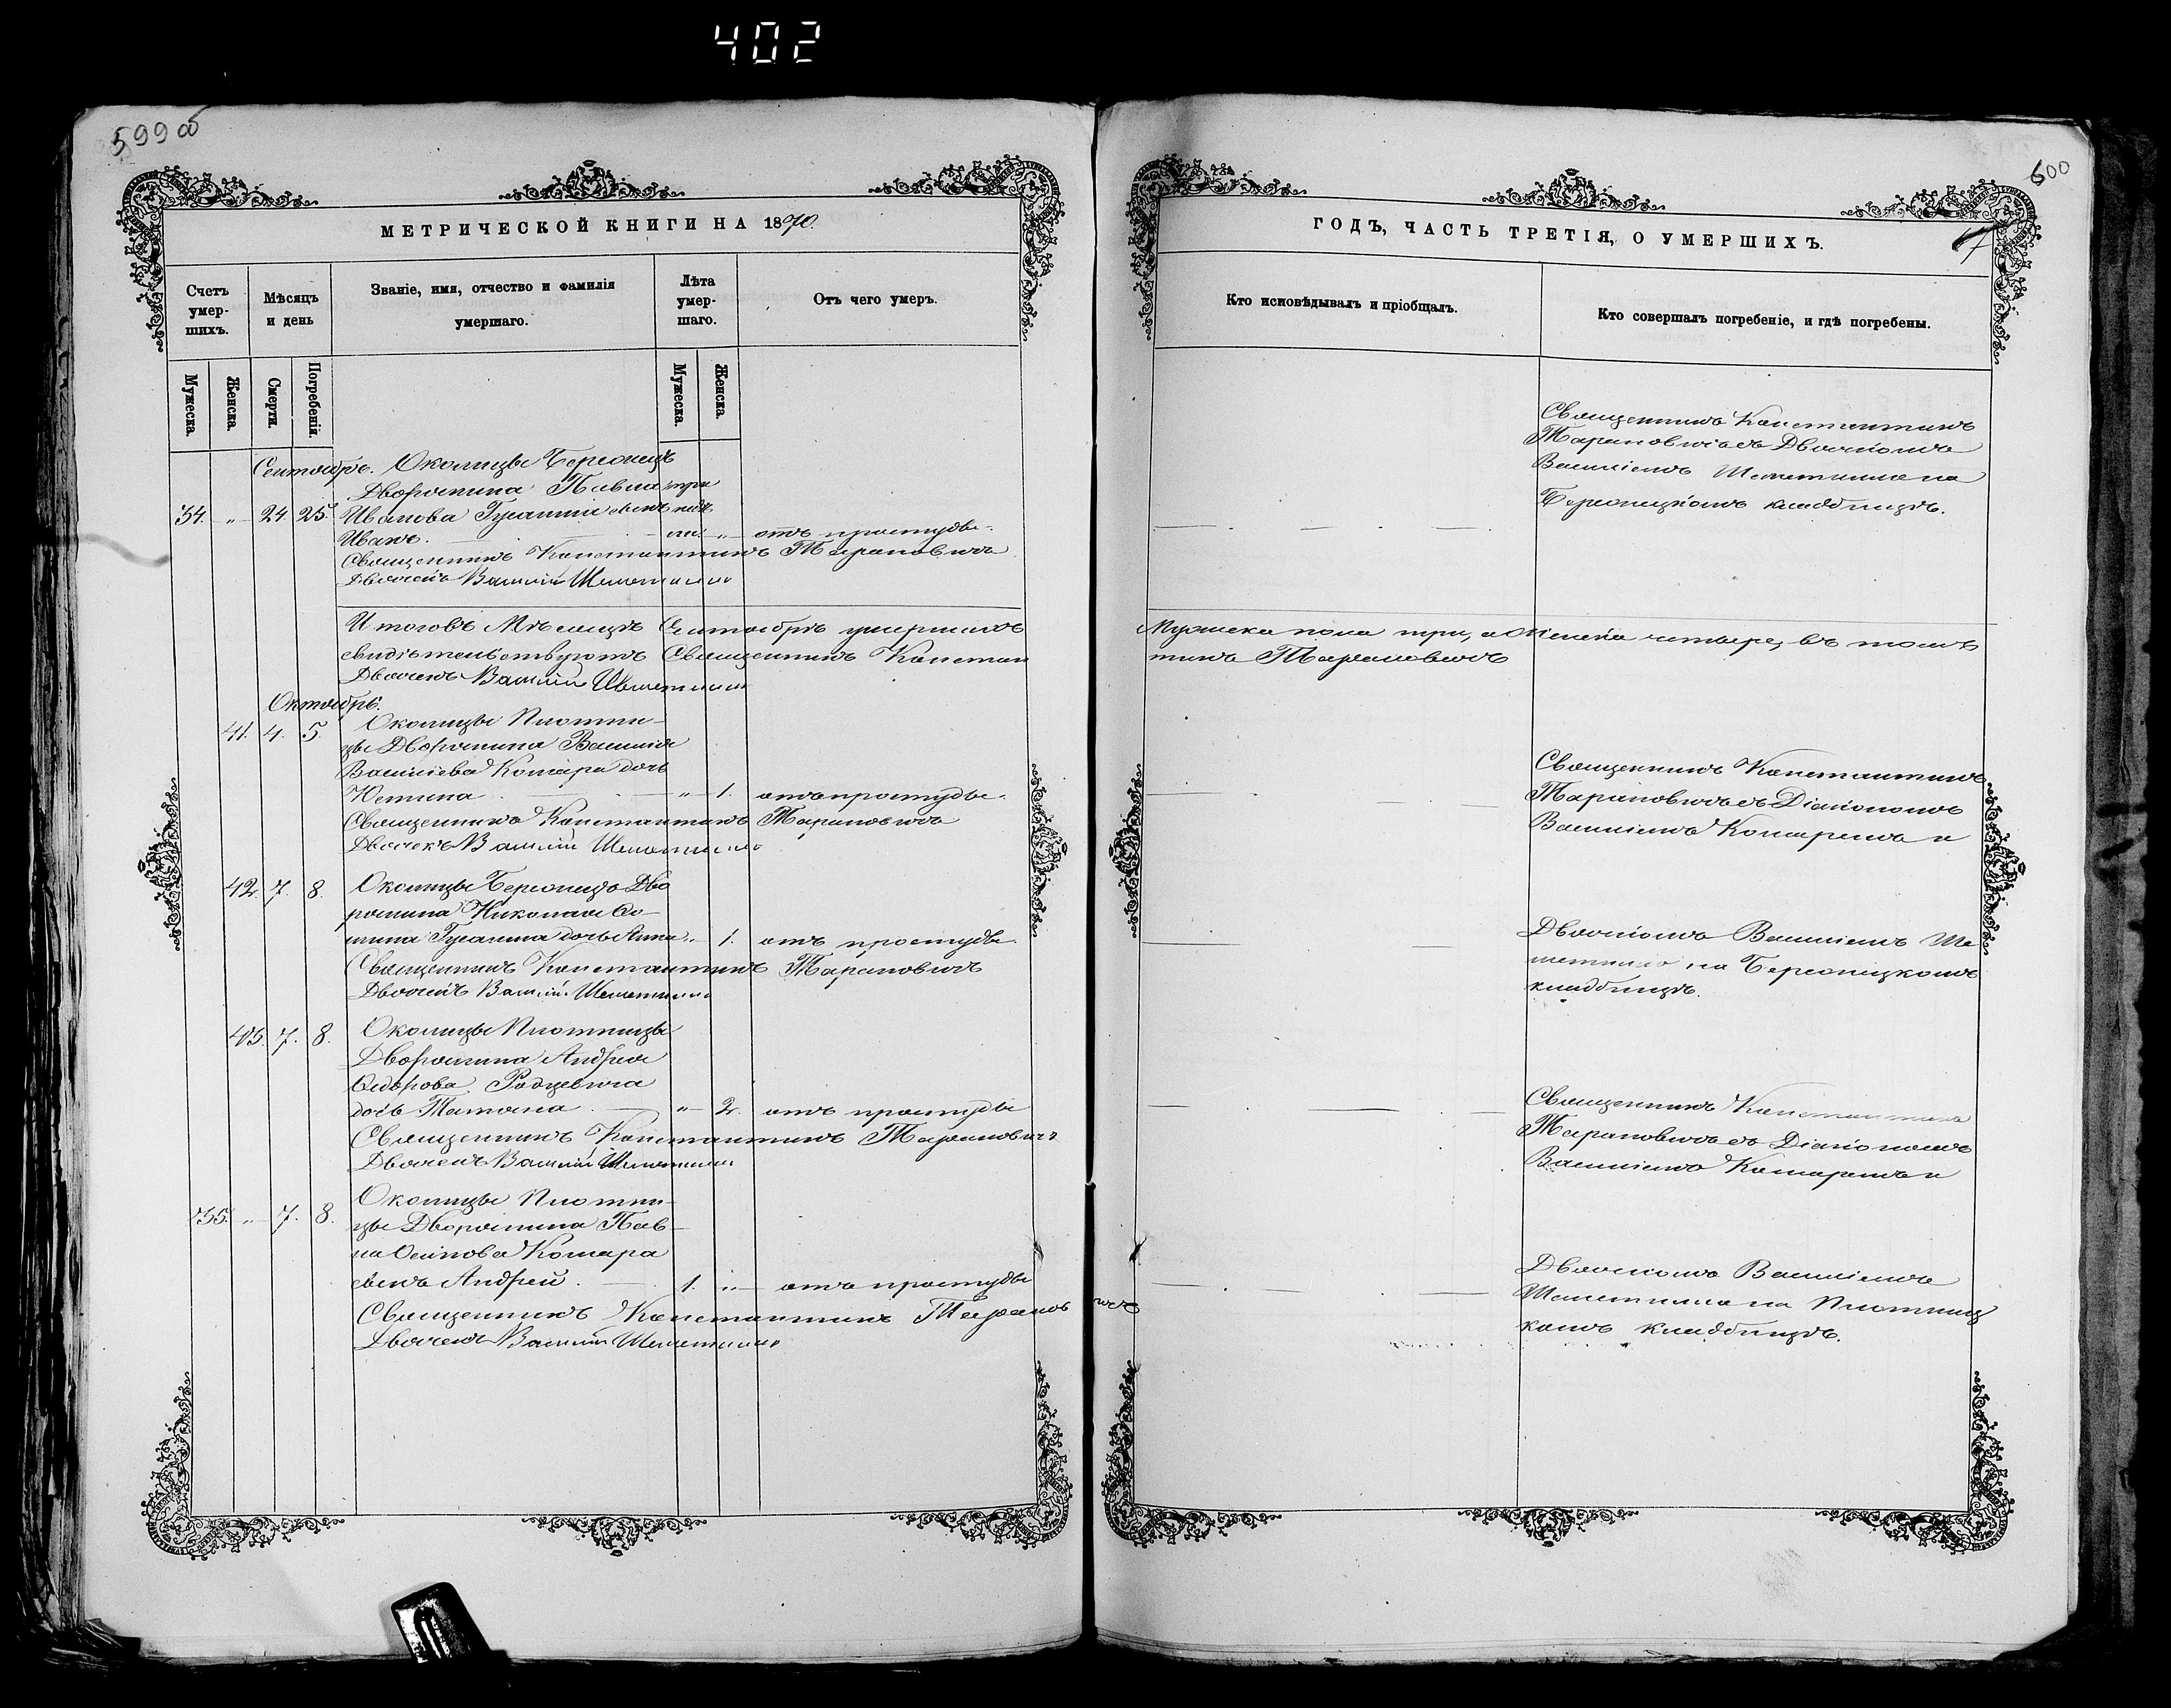 402
599 об
МЕТРИЧЕСКОЙ КНИГИ НА 1870.
Счетъ умер-шихъ.
Мѣсяцъ и день
Званіе, имя, отчество и фамилія умершаго.
Лѣта умер-шаго.
Отъ чего умеръ.
Мужеска.
Женска.
Смерти.
Погребенія.
Мужеска.
Женска.
Сентябрь. Околицы Бережецъ
Дворянина Павла три
34. „ 24 25. Иванова Гусаним сынъ недѣ
Иванъ. „ отъ простуды.
Священникъ Константинъ Тарановичъ
Дьячекъ Василій Шеметилло
Итого въ Мѣсяцѣ Сентябрѣ умершихъ
свидѣтельствуютъ Священникъ Констан
Дьячекъ Василій Шеметилло
Октябрь.
41. 4. 5. Околицы Плотни-
цы Дворянина Василія
Васильева Комара дочь
Юстина „ 1. отъ простуды.
Священникъ Константинъ Тарановичъ
Дьячекъ Василій Шеметилло
42. 7. 8. Околицы Дво
рянина Николая
дочь Анна „ 1. отъ простуды.
Священникъ Константинъ Тарановичъ
Дьячекъ Василій Шеметилло
43. 7. 8. Околицы Плотницы
Дворянина Андрея
Родцевича
дочь Татіана „ 2. отъ простуды
Священникъ Константинъ Тарановичъ
Дьячекъ Василій Шеметилло
35. „ 7. 8. Околицы Плотни-
цы Дворянина Пав-
ла Осипова Комара
сынъ Андрей. 1. „ отъ простуды
Священникъ Константинъ Тарановичъ
Дьячекъ Василій Шеметилло
600
ГОДЪ, ЧАСТЬ ТРЕТІЯ, О УМЕРШИХЪ.
Кто исповѣдывалъ и пріобщалъ.
Кто совершалъ погребеніе, и гдѣ погребены.
Священникъ Константинъ
Тарановичъ съ Дьячкомъ
Василіемъ Шеметилло на
кладбищѣ.
Мужеска пола три, а Женска четыре, въ томъ
тинъ Тарановичъ
Священникъ Константинъ
Тарановичъ съ Діакономъ
Василіемъ Комаремъ и
Дьячкомъ Василіемъ Ше
метилло на
кладбищѣ.
Священникъ Константинъ
Тарановичъ съ Діакономъ
Василіемъ Комаремъ и
Дьячкомъ Василіемъ
Шеметилло на Плотниц
комъ кладбищѣ.